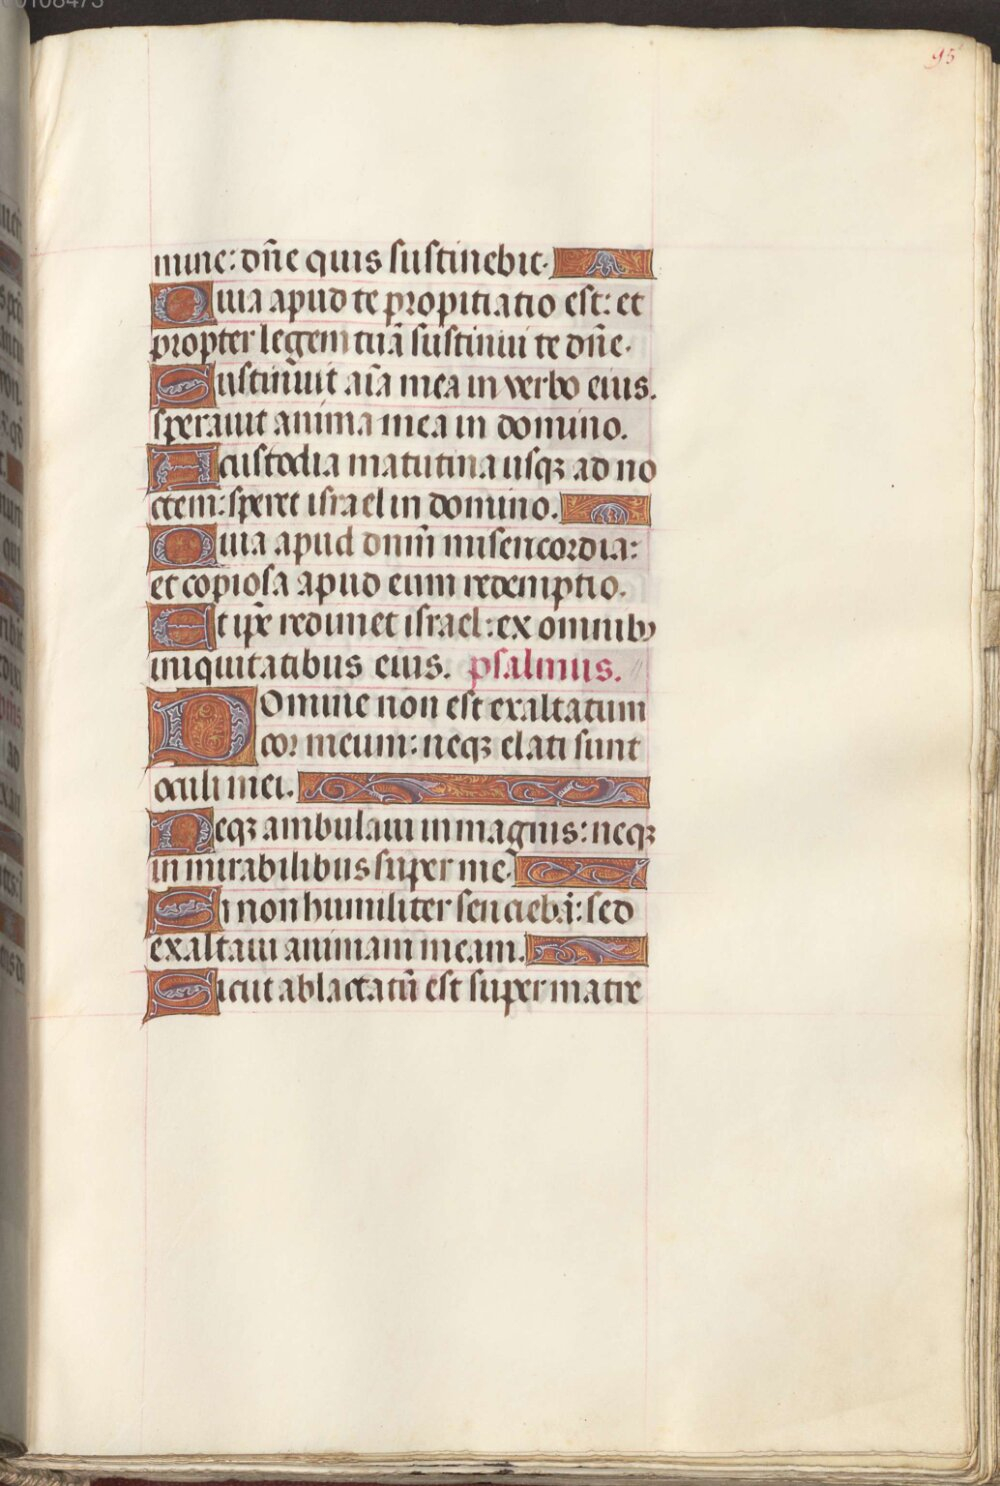 95
mine: dn̄e quis sustinebit.
Quia apud te propitiatio est: et
propter legem tuā sustinui te dn̄e.
Sustinuit aīa mea in verbo eius.
speravit anima mea in domino.
A custodia matutina usqꝫ ad no
ctem: speret israel in domino.
Quia apud dnm̄ misericordia:
et copiosa apud eum redemptio.
Et ip̄e redimet israel: ex omnibꝰ
iniquitatibus eius. psalmus.
Domine non est exaltatum
cor meum: neqꝫ elati sunt
oculi mei.
Neqꝫ ambulavi in magnis: neqꝫ
in mirabilibus super me.
Si non humiliter sentiebā: sed
exaltavi animam meam.
Sicut ablactatū est super matre